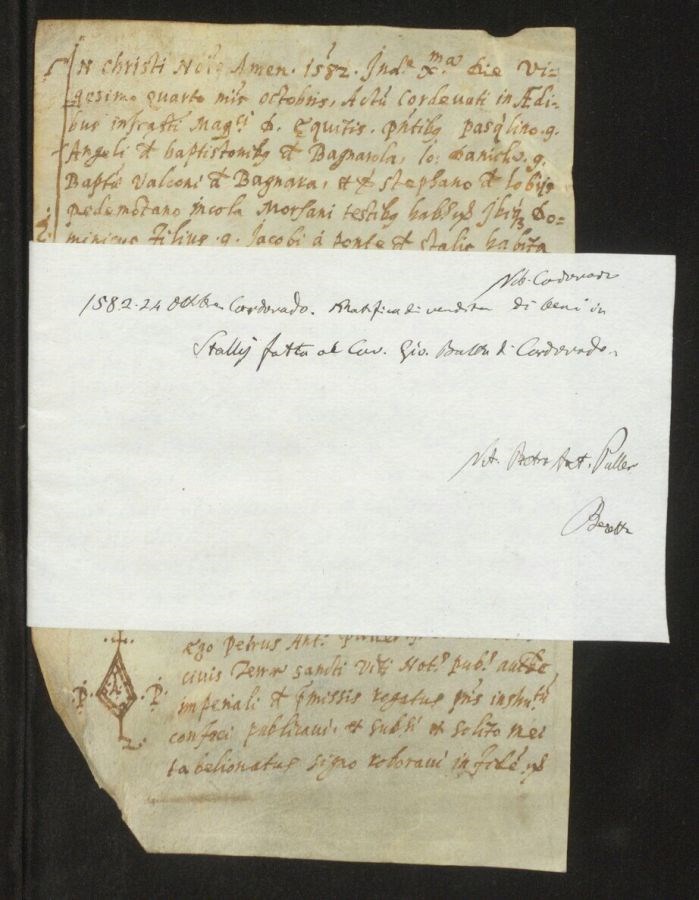 In Christi Noīe Amen. 1582. Indᵉ xᵐᵃ. die vi=
gesimo quarto mēs octobris, Actū Cordevati in Ædi=
bus infrasti Mag.ci D. Equitis. pñtibq pasqlino. q.
Angeli de baptistonibq de Bagnarola, Io: Daniele. q.
Baptē valconi de Bagnara, et stephano de
pedemōtano incola Morsani testibq habitis Do=
minicus filius. q. Jacobi à ponte de stalis habita
Not. Cordovado
1582. 24 Ottbre Cordovado. Ratifica di vendita di beni in
Stallis fatta al Cav. Gio. Batta di Cordovado.
Not. Pietro Ant. Puller
Beretta
Ego Petrus Ant.s
civis Terræ sancti viti Not.s pub.s aucte
imperiali de pmissis rogatus pñs instutū
confeci publicavi, et subsi et solito mei
tabelionatus signo roboravi in fidē
.P. .P.